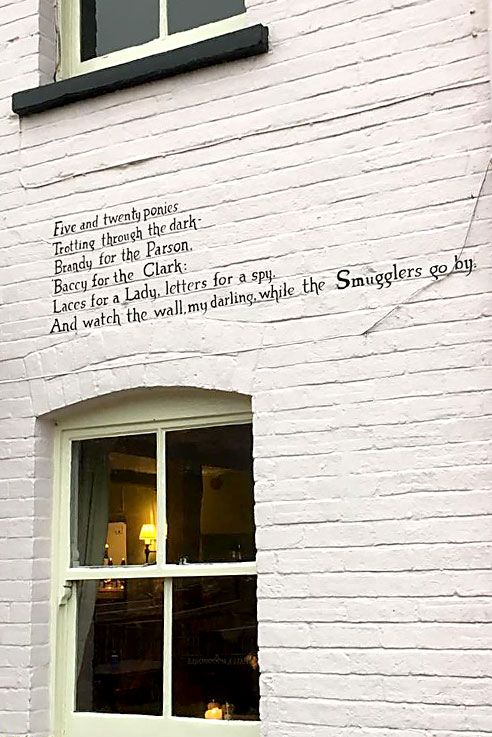 Five and twenty ponies
Trotting through the dark-
Brandy for the Parson,
'Baccy for the Clark:
Laces for a Lady, letters for a spy.
And watch the wall, my darling, while the Smugglers go by.